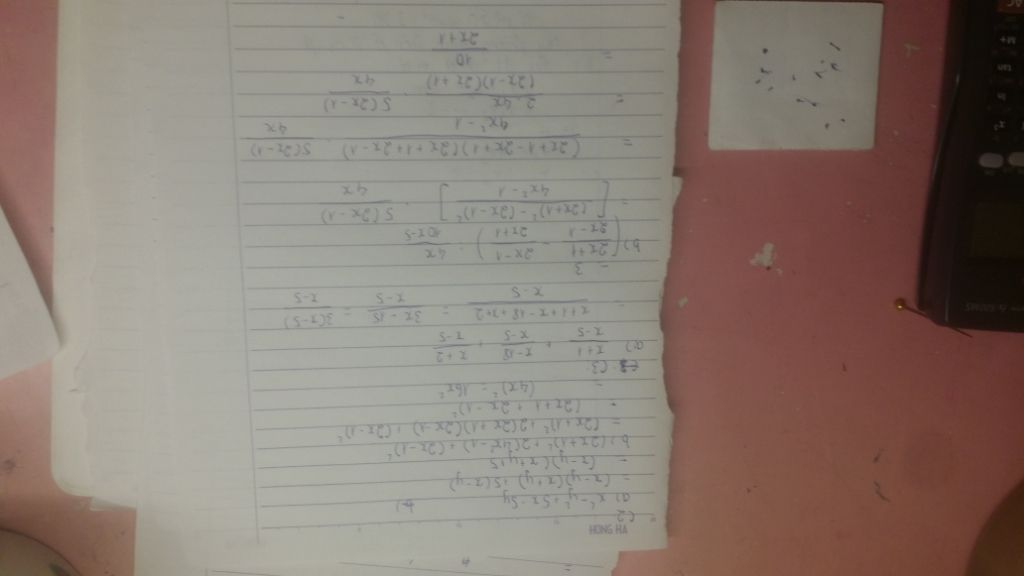 HONG HA
C2
a) x² - y² + 5x - 5y
= (x-y)(x+y) + 5(x-y)
= (x-y)(x+y+5
b) (2x+1)² + 2(4x²-1) + (2x-1)²
= (2x+1)² + 2(2x+1)(2x-1) + (2x-1)²
= (2x+1 + 2x-1)²
= (4x)² = 16x²
C3.
a) \frac{x+1}{x-5} + \frac{x-18}{x-5} + \frac{x+2}{x-5}
= \frac{x+1+x-18+x+2}{x-5} = \frac{3x-15}{x-5} = \frac{3(x-5)}{x-5}
= 3
b) (\frac{2x+1}{2x-1} - \frac{2x-1}{2x+1}) : \frac{4x}{10x-5}
= [\frac{(2x+1)² - (2x-1)²}{4x²-1}] . \frac{5(2x-1)}{4x}
= \frac{(2x+1-2x+1)(2x+1+2x-1)}{4x²-1} . \frac{5(2x-1)}{4x}
= \frac{2.4x}{(2x-1)(2x+1)} . \frac{5(2x-1)}{4x}
= \frac{10}{2x+1}